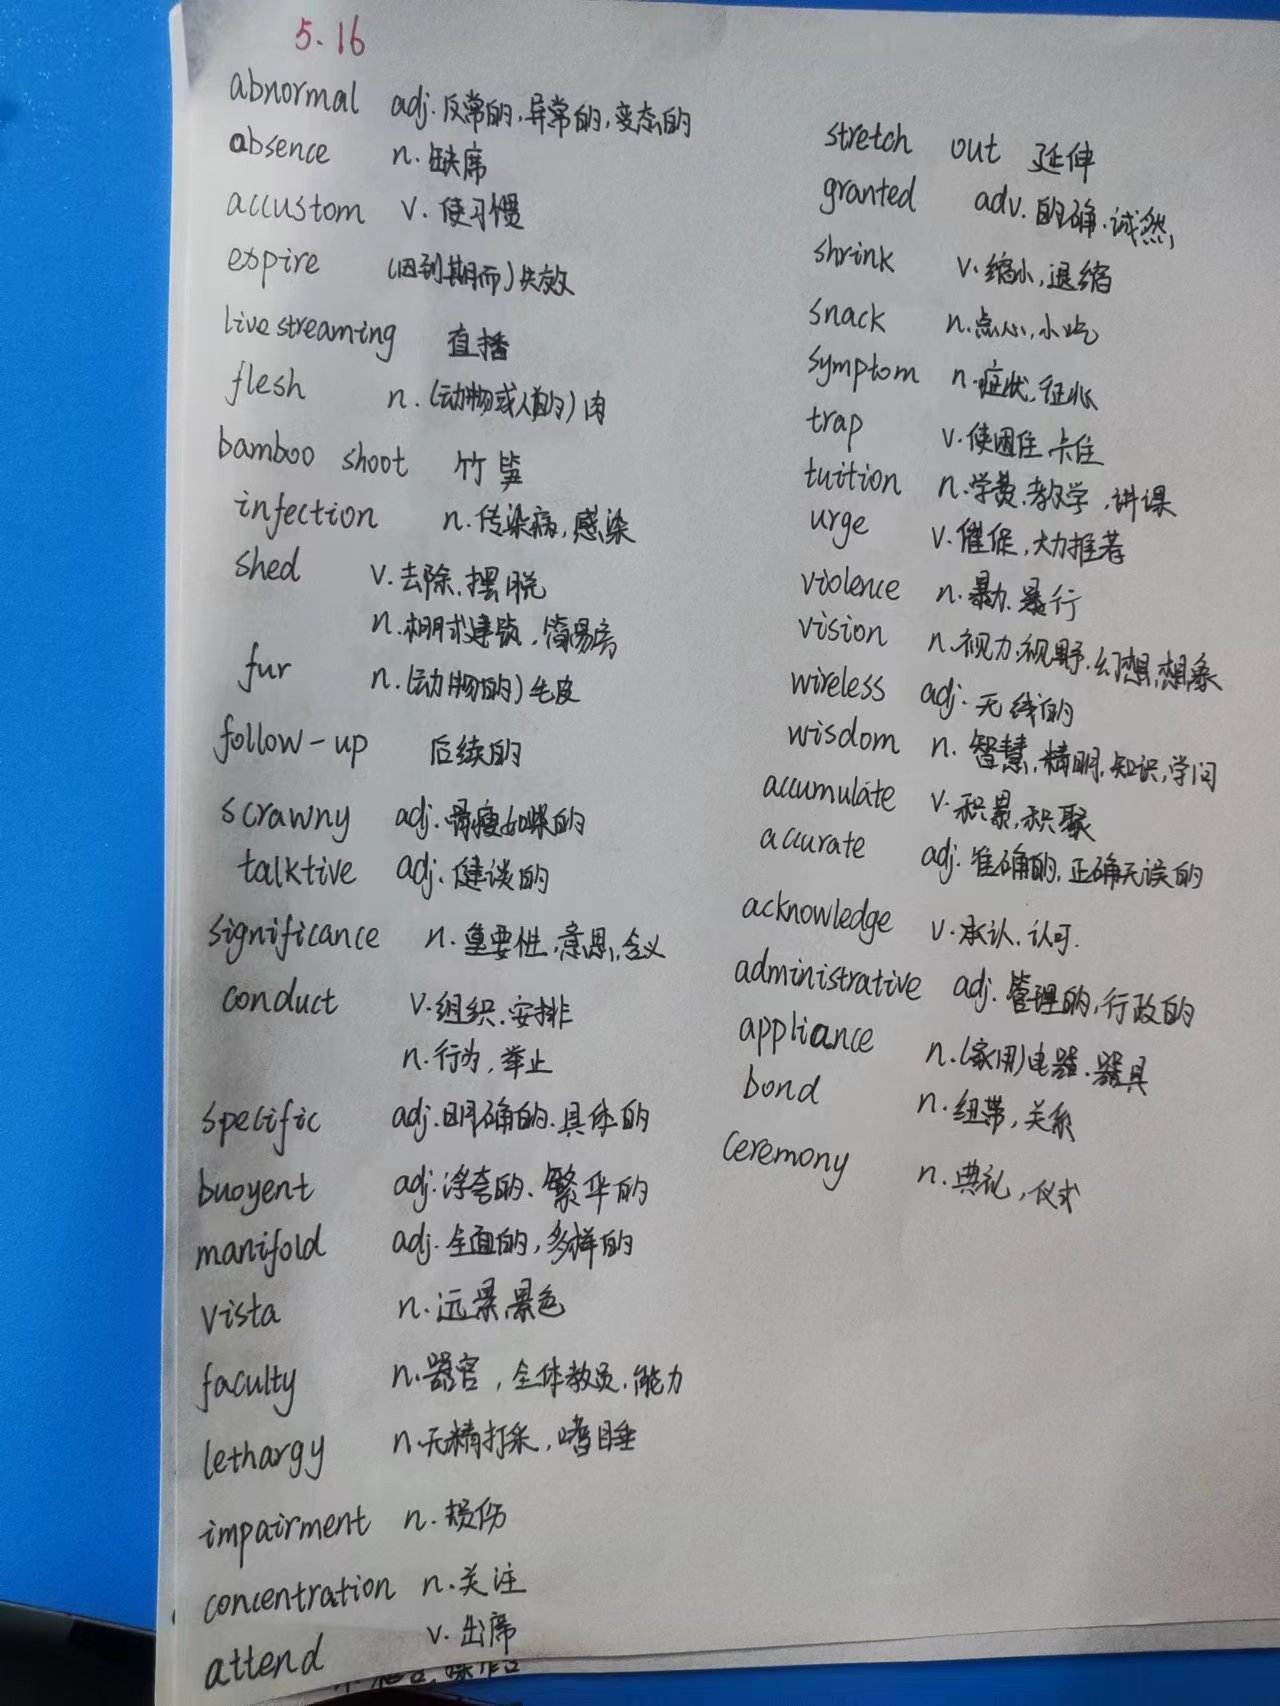 5.16
abnormal adj.反常的,异常的,变态的
absence n.缺席
accustom v.使习惯
expire (因到期而)失效
live streaming 直播
flesh n.(动物或人的)肉
bamboo shoot 竹笋
infection n.传染病,感染
shed v.去除.摆脱
n.棚式建筑,简易房
fur n.(动物的)毛皮
follow-up 后续的
scrawny adj.骨瘦如柴的
talktive adj.健谈的
significance n.重要性,意思,含义
conduct v.组织.安排
n.行为,举止
specific adj.明确的.具体的
buoyent adj.浮夸的、繁华的
manifold adj.全面的,多样的
vista n.远景,景色
faculty n.器官,全体教员,能力
lethargy n.无精打采,嗜睡
impairment n.损伤
concentration n.关注
attend v.出席
stretch out 延伸
granted adv.的确.诚然,
shrink v.缩小,退缩
snack n.点心,小吃
symptom n.症状,征兆
trap v.使困住,卡住
tuition n.学费.教学,讲课
urge v.催促,大力推荐
violence n.暴力.暴行
vision n.视力.视野.幻想,想象
wireless adj.无线的
wisdom n.智慧,精明,知识,学问
accumulate v.积累,积聚
accurate adj.准确的.正确无误的
acknowledge v.承认.认可.
administrative adj.管理的,行政的
appliance n.(家用)电器.器具
bond n.纽带,关系
ceremony n.典礼,仪式